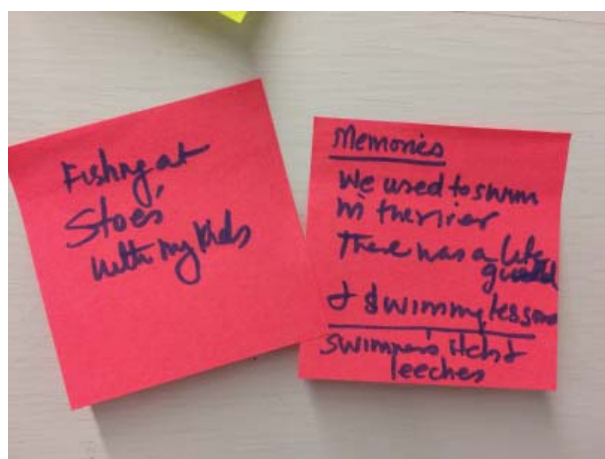 Fishing at
Stoes'
with my kids
Memories
We used to swim
in the river
There was a life
guard
& swimming lessons
Swimmer's itch &
leeches